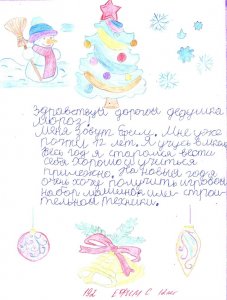 Здравствуй дорогой дедушка
Мороз.
Меня зовут Ефим. Мне уже
почти 12 лет. Я учусь в школе
Весь год я старался вести
себя хорошо и учиться
прилежно. На новый год я
очень хочу получить игровой
набор машинок или строи
тельной техники.
Ефим С 12лет